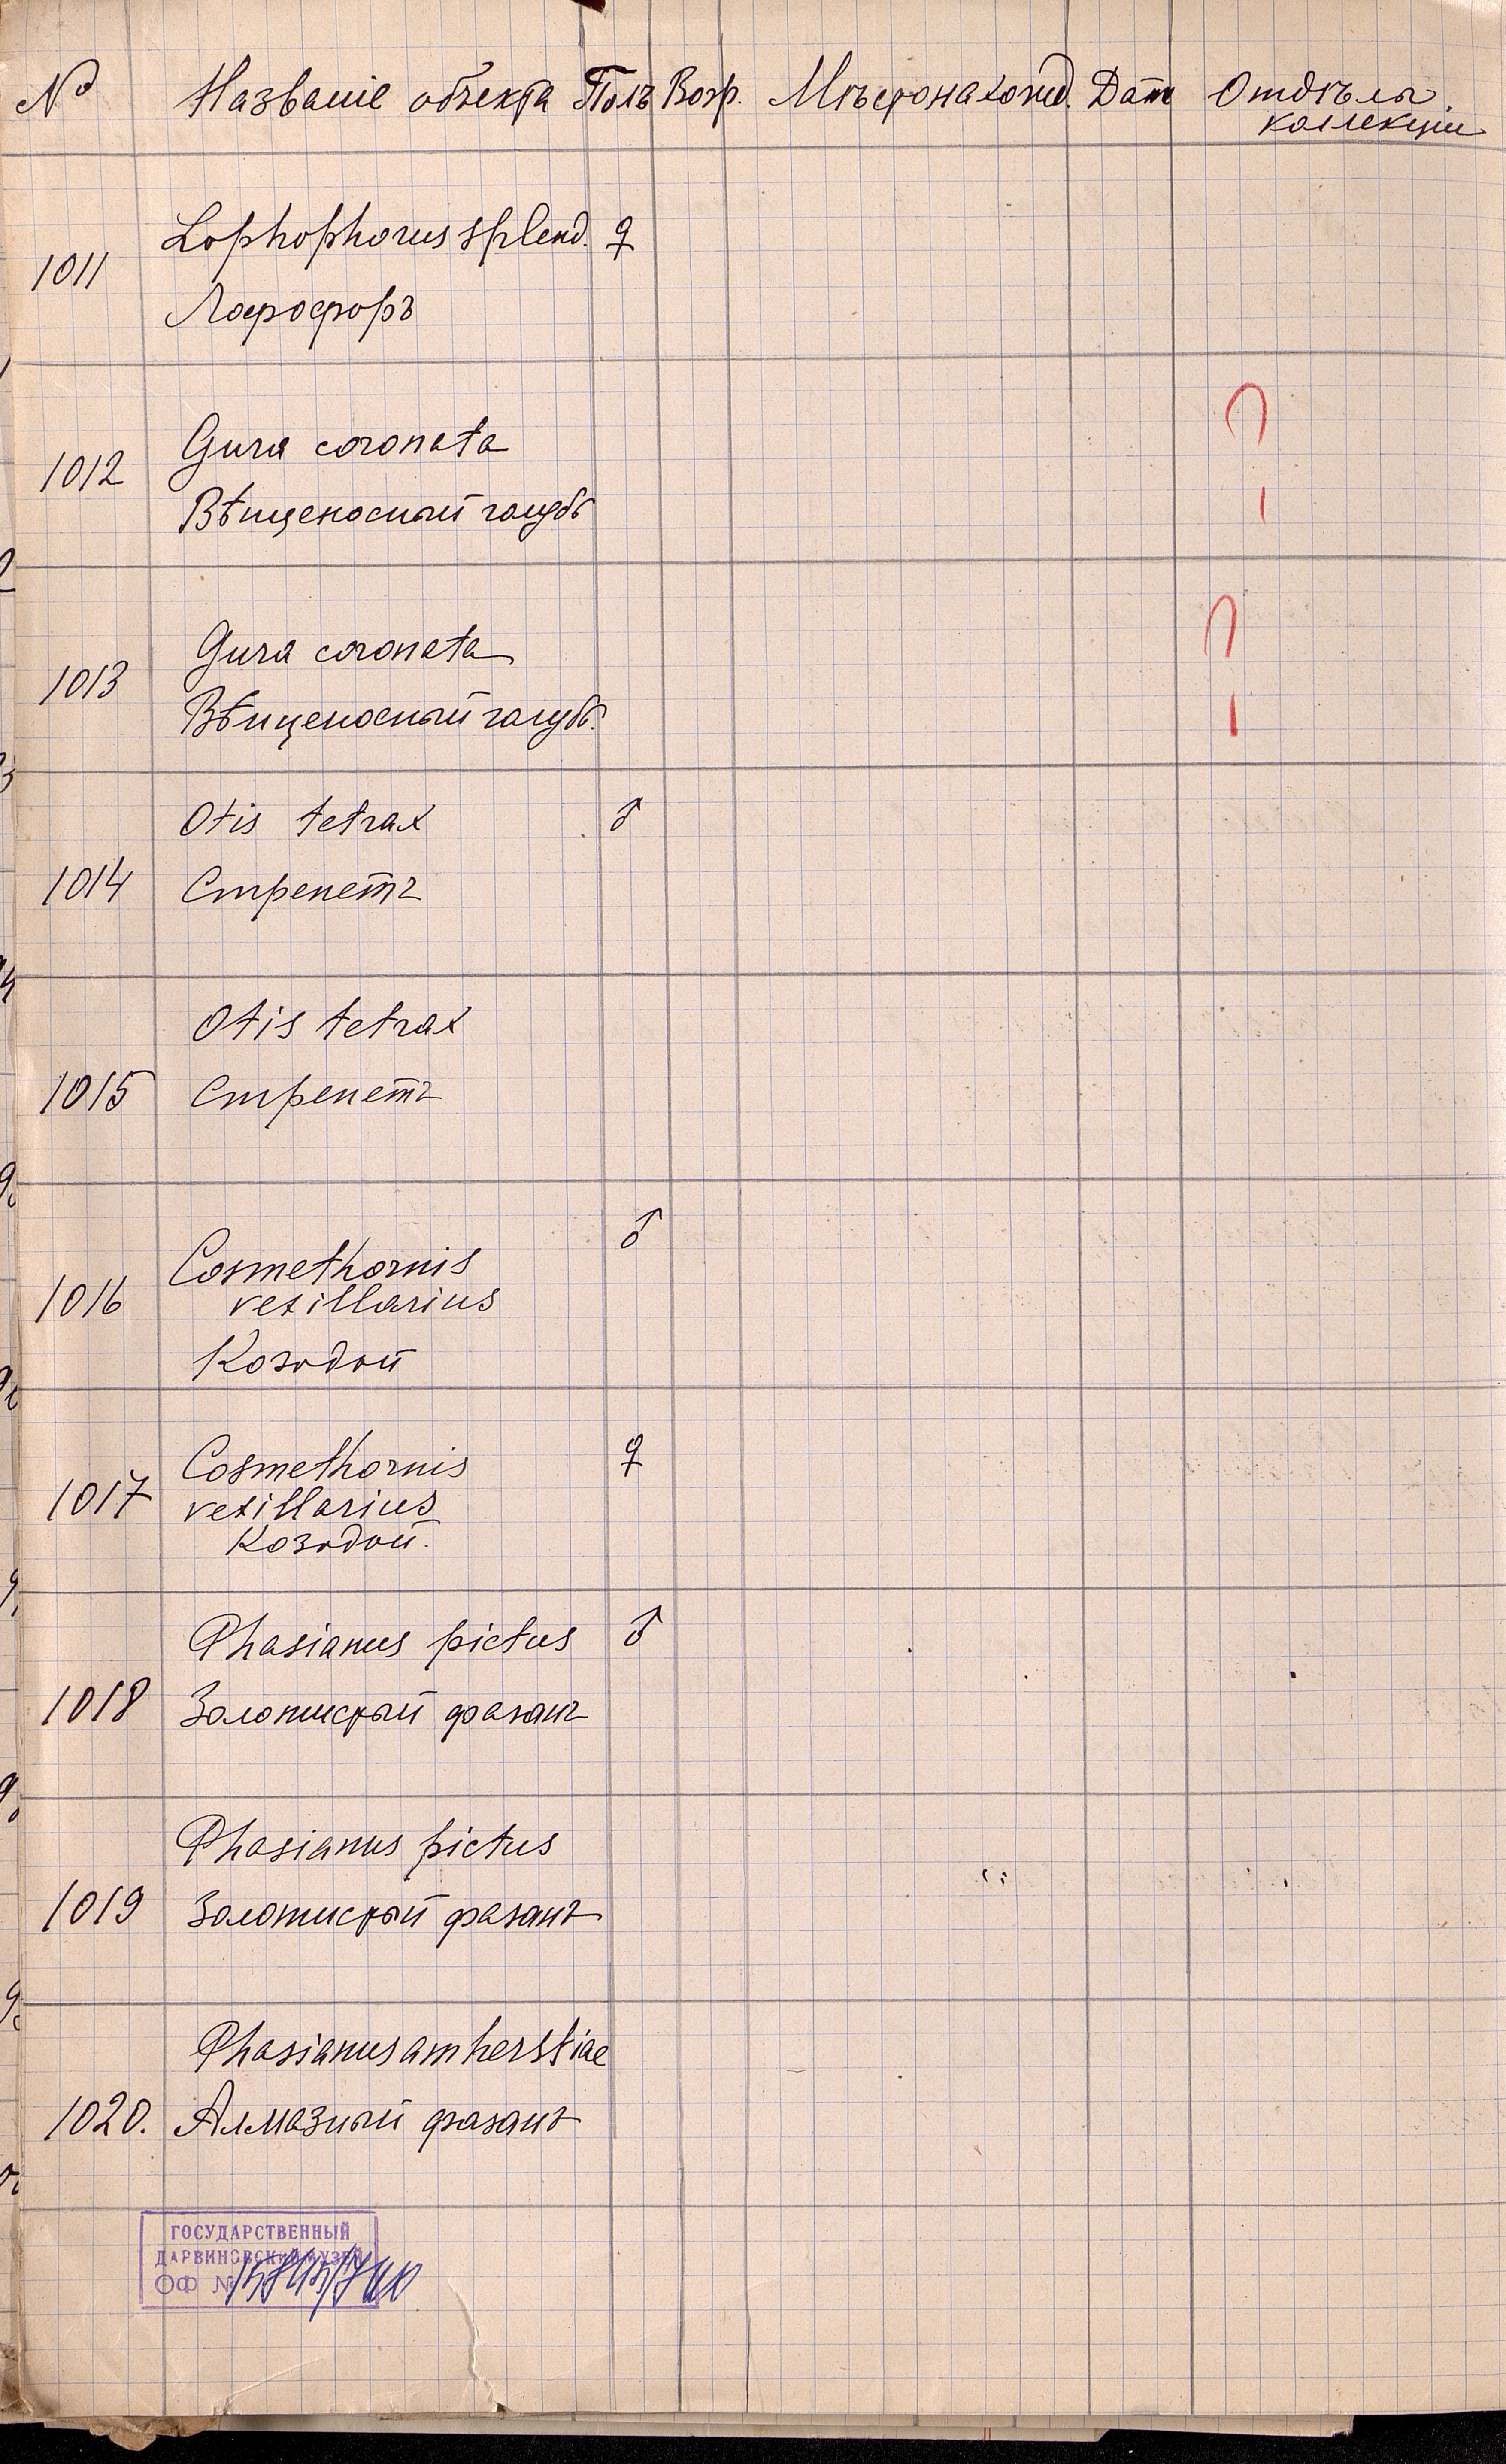 № Названіе объекта Полъ Возр. Мѣстонахожд. Дата Отдѣлы
коллекціи
Lophophorus splend. ♀
1011
Лофофоръ
Gura coronata
1012
Вѣнценосный голубь
?
Gura coronata
1013
Вѣнценосный голубь.
?
Otis tetrax ♂
1014 Стрепетъ
Otis tetrax
1015 Стрепетъ
♂
Cosmethornis
1016 vexillarius
Козодой
Cosmethornis ♀
1017 vexillarius
Козодой.
Phasianus pictus ♂
1018 Золотистый фазанъ
Phasianus pictus
1019 Золотистый фазанъ
Phasianus amherstiae
1020. Алмазный фазанъ
ГОСУДАРСТВЕННЫЙ
ДАРВИНОВСКИЙ МУЗЕЙ
ОФ №